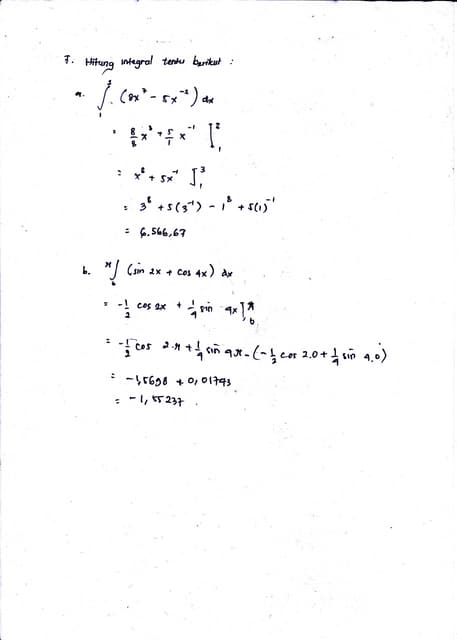 7. Hitung integral tentu berikut :
a. ∫₁³ (8x⁷ - 5x⁻²) dx
= 8/8 x⁸ + 5/1 x⁻¹ ]₁³
= x⁸ + 5x⁻¹ ]₁³
= 3⁸ + 5(3⁻¹) - 1⁸ + 5(1)⁻¹
= 6.566,67
b. ∫₀^π (sin 2x + cos 4x) dx
= -1/2 cos 2x + 1/4 sin 4x ]₀^π
= -1/2 cos 2.π + 1/4 sin 4π - (-1/2 cos 2.0 + 1/4 sin 4.0)
= -1,5698 + 0,01793
= -1,55237.